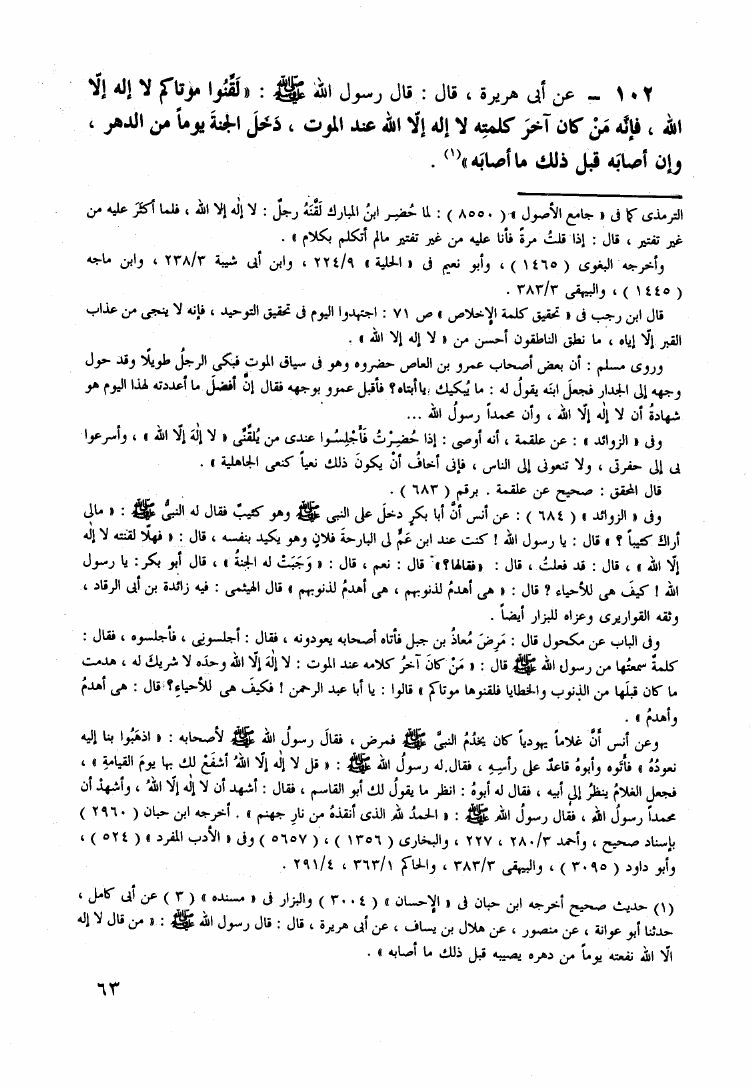 ١٠٢ – عن أبى هريرة ، قال : قال رسول الله ﷺ : «لَقِّنُوا موْتاكم لا إله إلّا
الله ، فإنَّه مَنْ كان آخرَ كلمتِه لا إله إلّا الله عند الموت ، دَخَلَ الجنةَ يوماً من الدهر ،
وإن أصابَه قبل ذلك ما أصابَه»(١) .
الترمذى كما فى « جامع الأصول » ( ٨٥٥٠ ) : لما حُضِر ابنُ المبارك لَقَّنَهُ رجلٌ : لا إلٰه إلا الله ، فلما أكثَر عليه من
غير تفتير ، قال : إذا قلتُ مرةً فأنا عليه من غير تفتير مالم أتكلم بكلام » .
وأخرجه البغوى ( ١٤٦٥ ) ، وأبو نعيم فى « الحلية » ٢٢٤/٩ ، وابن أبى شيبة ٢٣٨/٣ ، وابن ماجه
( ١٤٤٥ ) ، والبيهقى ٣٨٣/٣ .
قال ابن رجب فى « تحقيق كلمة الإخلاص » ص ٧١ : اجتهدوا اليوم فى تحقيق التوحيد ، فإنه لا ينجى من عذاب
القبر إلّا إياه ، ما نطق الناطقون أحسن من « لا إله إلا الله » .
وروى مسلم : أن بعض أصحاب عمرو بن العاص حضروه وهو فى سياق الموت فبكى الرجلُ طويلًا وقد حول
وجهه إلى الجدار فجعلَ ابنَه يقولُ له : ما يُبكيك ياأبتاه؟ فأقبل عمرو بوجهه فقال إنَّ أفضلَ ما أعددته لهذا اليوم هو
شهادةُ أن لا إلٰه إلّا الله ، وأن محمداً رسولُ الله ...
وفى « الزوائد » : عن علقمة ، أنه أوصى : إذا حُضِرْتُ فَأَجْلِسُوا عندى من يُلَقِّنُى « لا إلٰهَ إلّا الله » ، وأسرعوا
بى إلى حفرتى ، ولا تنعونى إلى الناس ، فإنى أخافُ أنْ يكونَ ذلك نعياً كنعى الجاهلية » .
قال المحقق : صحيح عن علقمة . برقم ( ٦٨٣ ) .
وفى « الزوائد » ( ٦٨٤ ) : عن أنس أنَّ أبا بكرٍ دخلَ على النبى ﷺ وهو كئيبٌ فقال له النبىُّ ﷺ : « مالى
أراكَ كئيباً ؟ » قال : يا رسول الله ! كنت عند ابن عَمٍّ لى البارحةَ فلانٍ وهو يكيد بنفسه ، قال : « فهلّا لقنته لا إلٰه
إلّا الله » ، قال : قد فعلتُ ، قال : «فقالها؟» قال : نعم ، قال : « وَجَبَتْ له الجنةُ » ، قال أبو بكر: يا رسول
الله ! كيفَ هى للأحياء ؟ قال : « هى أهدمُ لذنوبهم ، هى أهدمُ لذنوبهم » قال الهيثمى : فيه زائدة بن أبى الرقاد ،
وثقه القواريرى وعزاه للبزار أيضاً .
وفى الباب عن مكحول قال : مَرِضَ مُعاذُ بن جبل فأتاه أصحابه يعودونه ، فقال : أجلسونى ، فأجلسوه ، فقال :
كلمةٌ سمعتُها من رسول الله ﷺ قال : « مَنْ كانَ آخرُ كلامه عند الموت : لا إلٰهَ إلّا الله وحدَه لا شريكَ له ، هدمت
ما كان قبلَها من الذنوب والخطايا فلقنوها موتاكم » قالوا : يا أبا عبد الرحمن ! فكيفَ هى للأحياءِ؟ قال : هى أهدمُ
وأهدمُ » .
وعن أنس أَنَّ غلاماً يهودياً كان يَخدُمُ النبىَّ ﷺ فمرض ، فقالَ رسولُ الله ﷺ لأصحابه : « اذهَبُوا بنا إليه
نعودُهُ » فأَتَوه وأبوهُ قاعدٌ على رأسِهِ ، فقال له رسولُ الله ﷺ : « قل لا إلٰه إلّا اللهُ أشفَعْ لك بها يومَ القيامة » ،
فجعل الغلامُ ينظرُ إلى أبيه ، فقال له أبوهُ : انظر ما يقولُ لك أبو القاسم ، فقال : أشهد أن لا إلٰه إلّا اللهُ ، وأشهدُ أن
محمداً رسول اللهِ ، فقال رسول الله ﷺ : « الحمدُ للهِ الذى أنقذهُ من نارِ جهنم » . أخرجه ابن حبان ( ٢٩٦٠ )
بإسناد صحيح ، وأحمد ٢٨٠/٣ ، ٢٢٧ ، والبخارى ( ١٣٥٦ ) ، ( ٥٦٥٧ ) وفى « الأدب المفرد » ( ٥٢٤ ) ،
وأبو داود ( ٣٠٩٥ ) ، والبيهقى ٣٨٣/٣ ، والحاكم ٣٦٣/١ ، ٢٩١/٤ .
(١) حديث صحيح أخرجه ابن حبان فى « الإحسان » ( ٣٠٠٤ ) والبزار فى « مسنده » ( ٣ ) عن أبى كامل ،
حدثنا أبو عوانة ، عن منصور ، عن هلال بن يساف ، عن أبى هريرة ، قال : قال رسول الله ﷺ : « من قال لا إله
الّا الله نفعته يوماً من دهره يصيبه قبل ذلك ما أصابه » .
٦٣